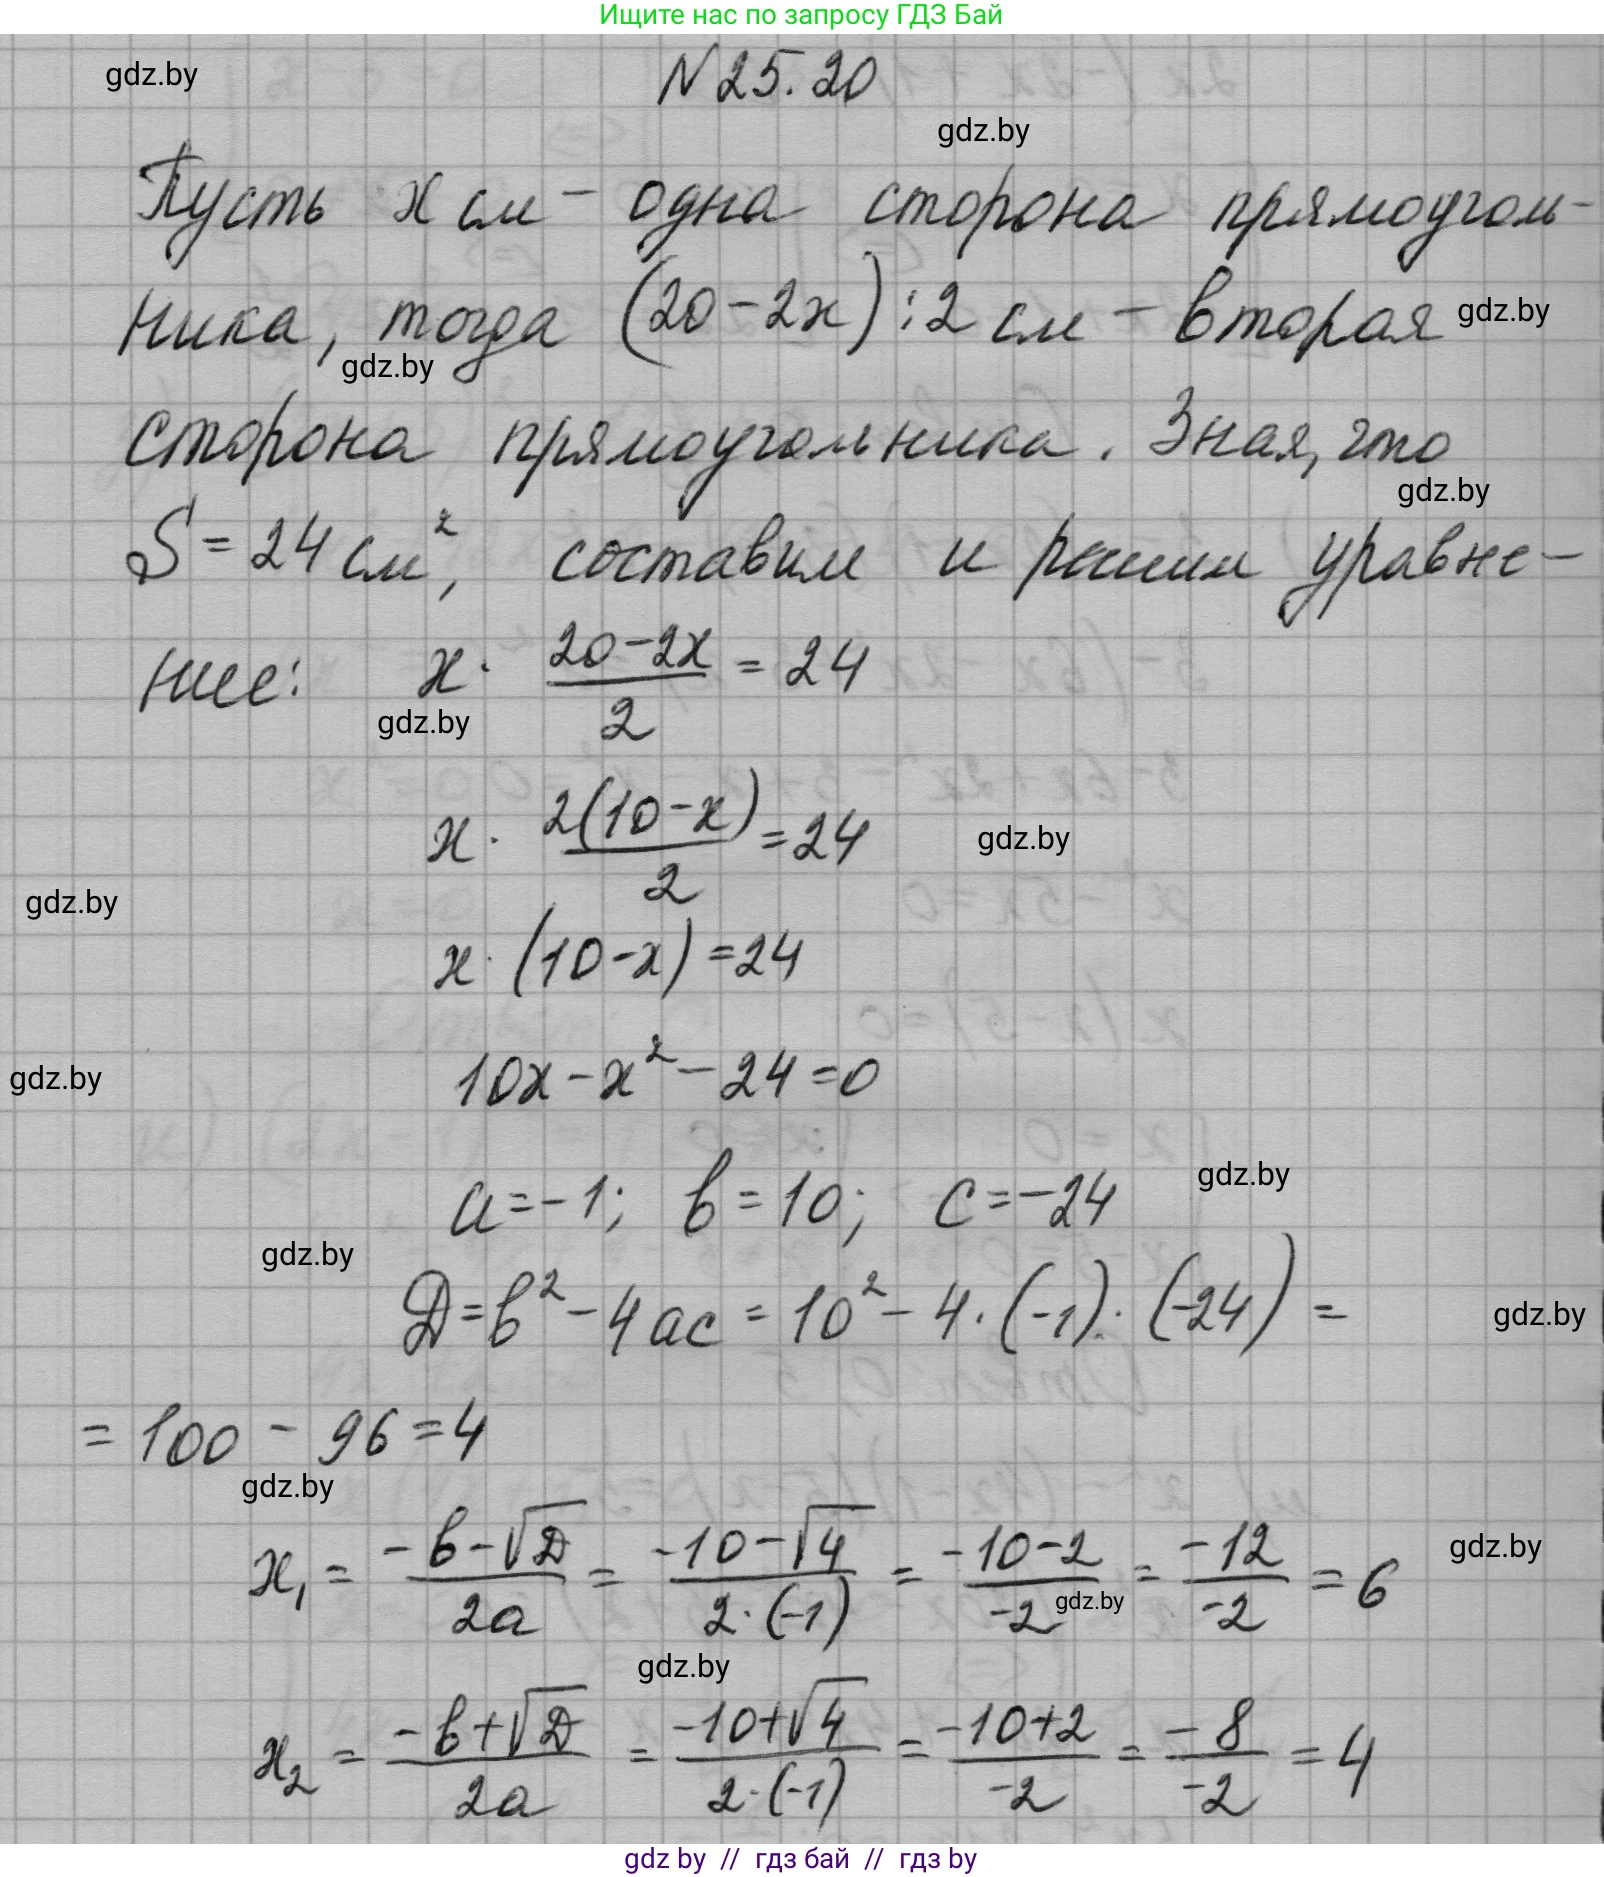 Ищите нас по запросу ГДЗ Бай
gdz.by
N 25.20
gdz.by
Пусть x см - одна сторона прямоуголь-
ника, тогда (20-2x):2 см - вторая
gdz.by
gdz.by
сторона прямоугольника. Зная, что
gdz.by
S = 24 см², составим и решим уравне-
ние: x · \frac{20-2x}{2} = 24
gdz.by
x · \frac{2(10-x)}{2} = 24
gdz.by
gdz.by
x · (10-x) = 24
10x - x² - 24 = 0
gdz.by
a = -1; b = 10; c = -24
gdz.by
gdz.by
D = b² - 4ac = 10² - 4 · (-1) · (-24) =
gdz.by
= 100 - 96 = 4
gdz.by
x₁ = \frac{-b-√D}{2a} = \frac{-10-√4}{2·(-1)} = \frac{-10-2}{-2} = \frac{-12}{-2} = 6
gdz.by
gdz.by
gdz.by
x₂ = \frac{-b+√D}{2a} = \frac{-10+√4}{2·(-1)} = \frac{-10+2}{-2} = \frac{-8}{-2} = 4
gdz by // гдз бай // гдз by